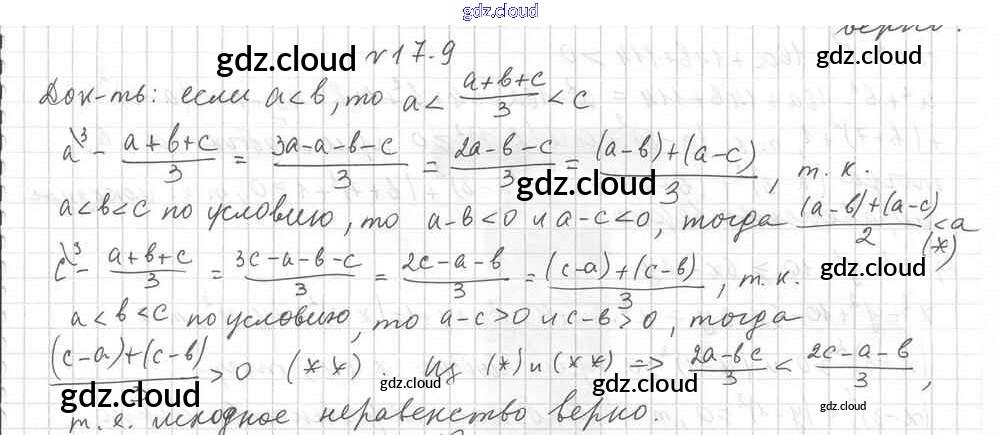 gdz.cloud
верно.
gdz.cloud №17.9 gdz.cloud
Док-ть: если a<b, то a < (a+b+c)/3 < c
a\3 - (a+b+c)/3 = (3a-a-b-c)/3 = (2a-b-c)/3 = ((a-b)+(a-c))/3, т.к.
gdz.cloud
a<b<c по условию, то a-b<0 и a-c<0, тогда ((a-b)+(a-c))/2 < a (*)
c\3 - (a+b+c)/3 = (3c-a-b-c)/3 = (2c-a-b)/3 = ((c-a)+(c-b))/3, т.к.
gdz.cloud gdz.cloud
a<b<c по условию, то a-c>0 и c-b>0, тогда
((c-a)+(c-b)) > 0 (**). Из (*) и (**) => (2a-bc)/3 < (2c-a-b)/3,
gdz.cloud gdz.cloud gdz.cloud gdz.cloud
т.е. исходное неравенство верно.
gdz.cloud gdz.cloud